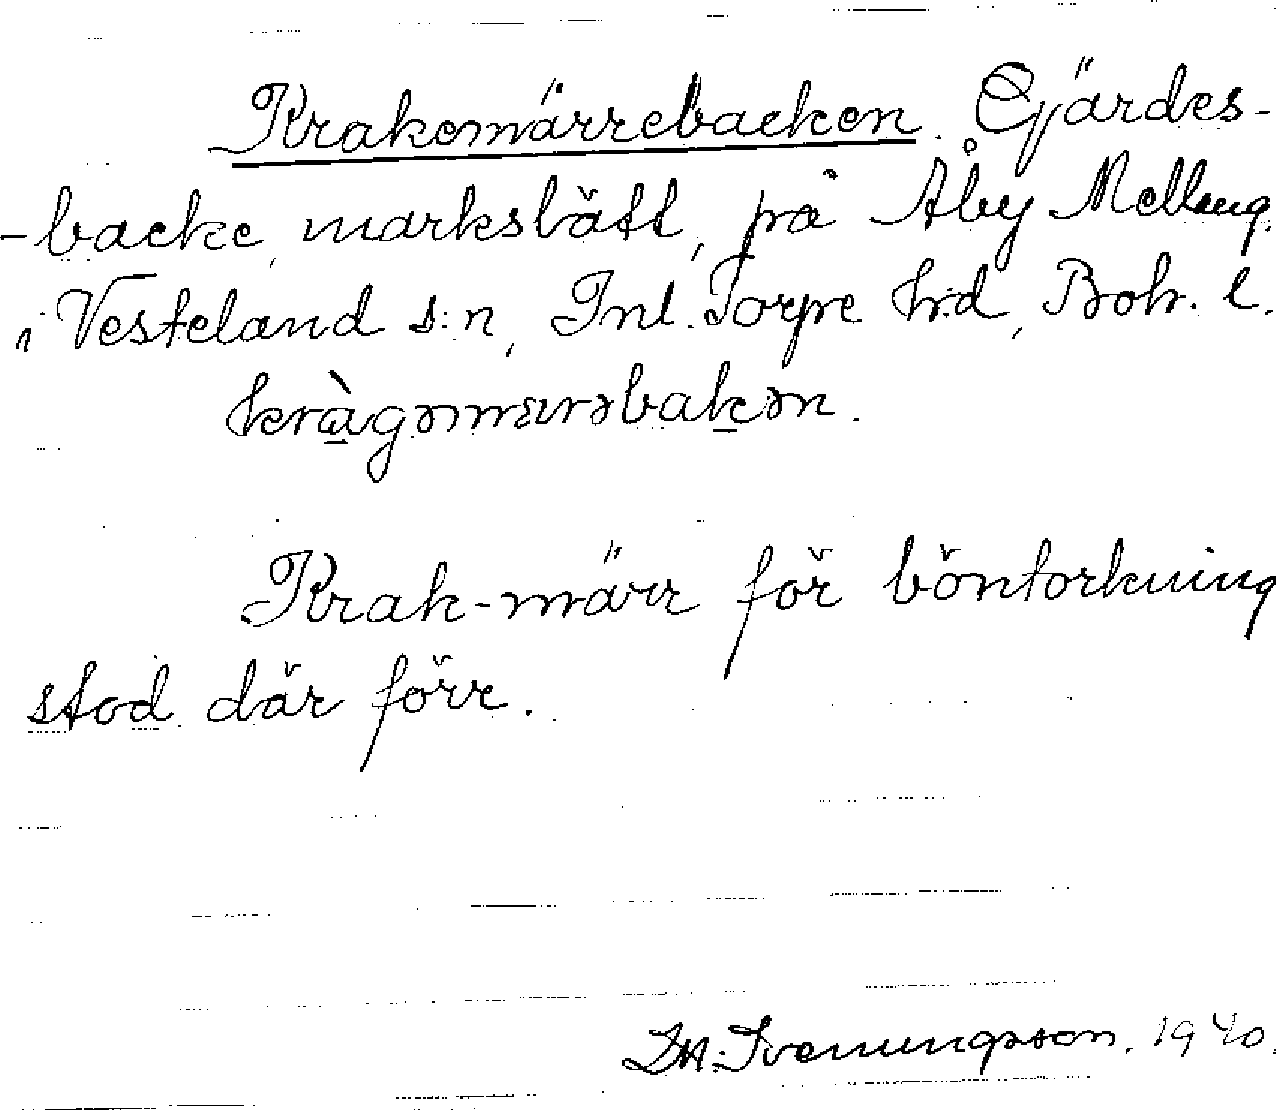 Krakemärrebacken. Gjärdes-
-backe, markslätt, på Åby Mellang.
i Vesteland s:n, Inl. Torpe h:d, Boh. l.
Krak-märr för böntorkning
stod där förr.
Svenungsson. 1940.